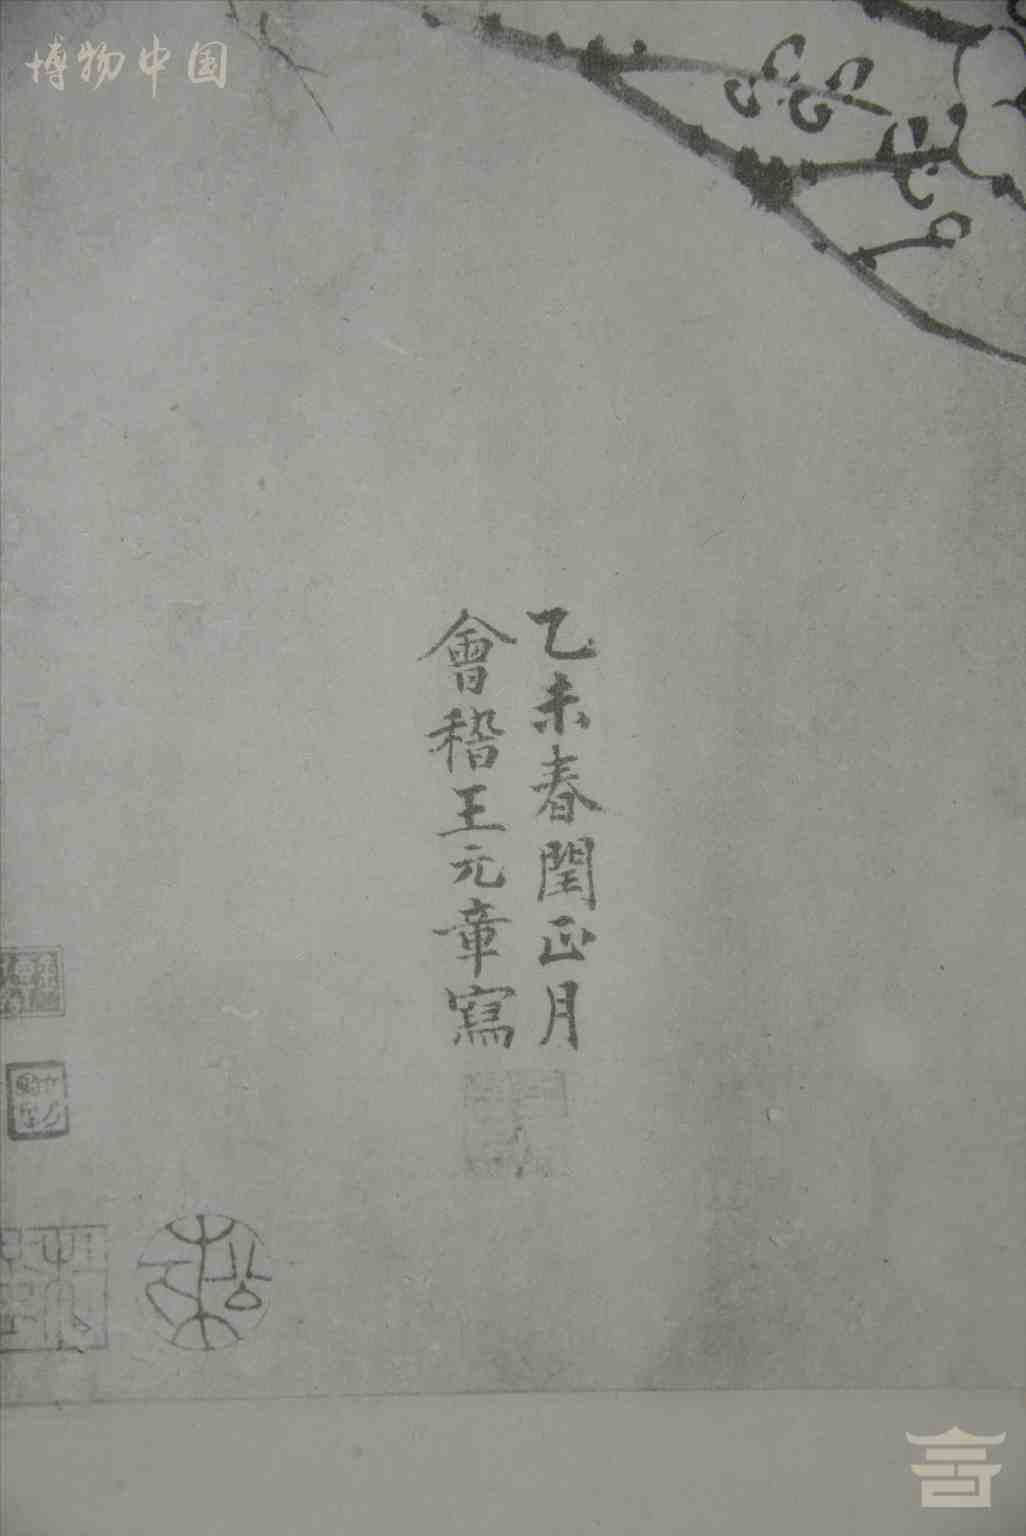 博物中国
乙未春閏正月
會稽王元章寫